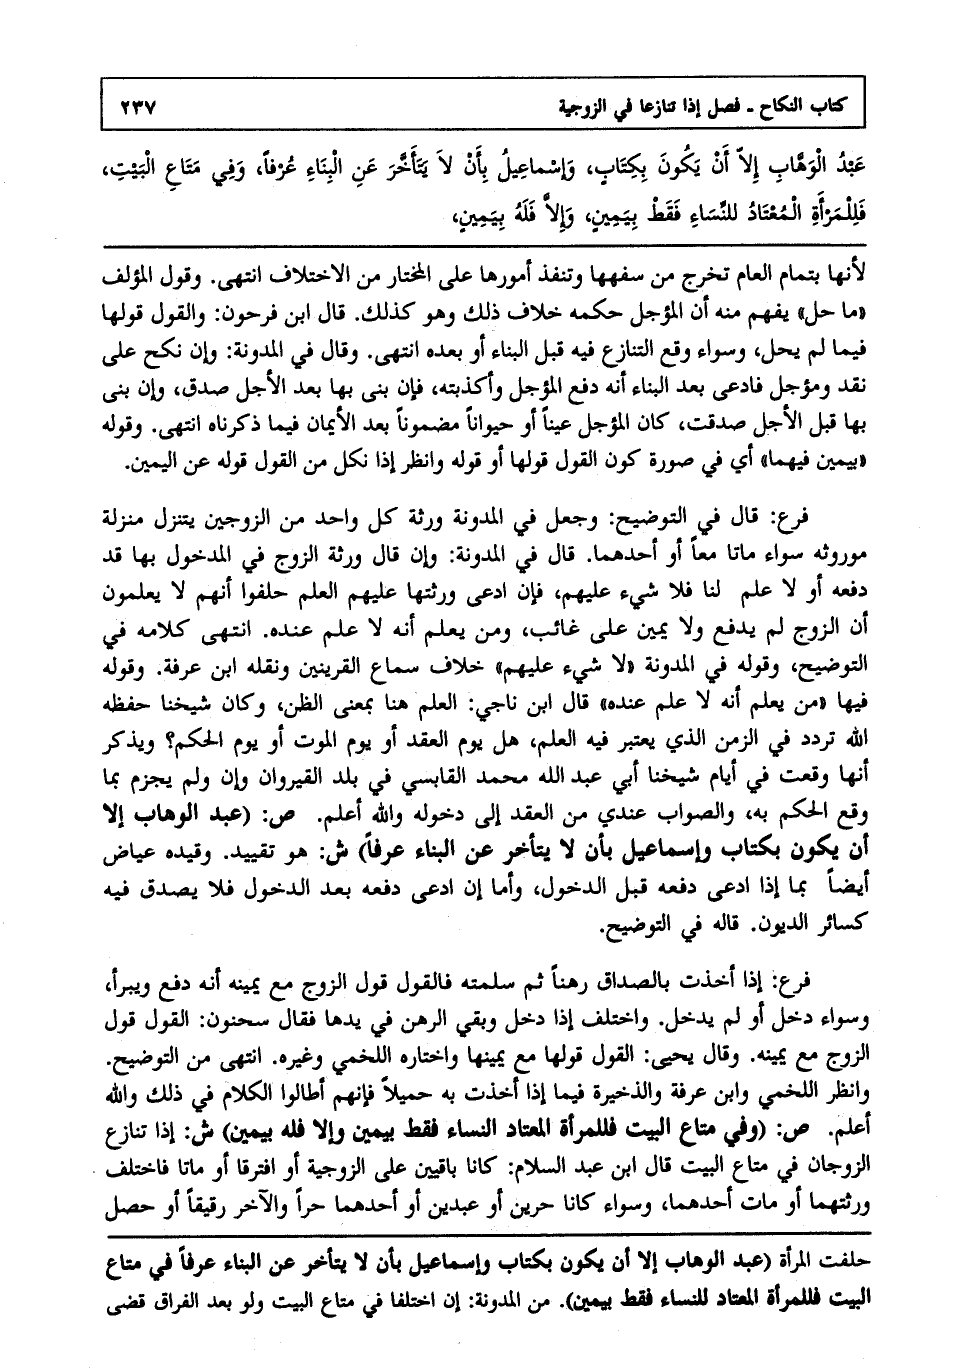 كتاب النكاح ـ فصل إذا تنازعا في الزوجية ٢٣٧
عَبْدُ الْوَهَّابِ إِلاَّ أَنْ يَكُونَ بِكِتَابٍ، وَإِسْماعِيلُ بِأَنْ لاَ يَتَأَخَّرَ عَنِ الْبِنَاءِ عُرْفاً، وَفِي مَتَاعِ الْبَيْتِ،
فَلِلْمَرْأَةِ الْمُعْتَادُ للنِّسَاءِ فَقَطْ بِيَمِينٍ، وَإِلاَّ فَلَهُ بِيَمِينٍ،
لأنها بتمام العام تخرج من سفهها وتنفذ أمورها على المختار من الاختلاف انتهى. وقول المؤلف
«ما حل» يفهم منه أن المؤجل حكمه خلاف ذلك وهو كذلك. قال ابن فرحون: والقول قولها
فيما لم يحل، وسواء وقع التنازع فيه قبل البناء أو بعده انتهى. وقال في المدونة: وإن نكح على
نقد ومؤجل فادعى بعد البناء أنه دفع المؤجل وأكذبته، فإن بنى بها بعد الأجل صدق، وإن بنى
بها قبل الأجل صدقت، كان المؤجل عيناً أو حيواناً مضموناً بعد الأيمان فيما ذكرناه انتهى. وقوله
«بيمين فيهما» أي في صورة كون القول قولها أو قوله وانظر إذا نكل من القول قوله عن اليمين.
فرع: قال في التوضيح: وجعل في المدونة ورثة كل واحد من الزوجين يتنزل منزلة
موروثه سواء ماتا معاً أو أحدهما. قال في المدونة: وإن قال ورثة الزوج في المدخول بها قد
دفعه أو لا علم لنا فلا شيء عليهم، فإن ادعى ورثتها عليهم العلم حلفوا أنهم لا يعلمون
أن الزوج لم يدفع ولا يمين على غائب، ومن يعلم أنه لا علم عنده. انتهى كلامه في
التوضيح، وقوله في المدونة «لا شيء عليهم» خلاف سماع القرينين ونقله ابن عرفة. وقوله
فيها «من يعلم أنه لا علم عنده» قال ابن ناجي: العلم هنا بمعنى الظن، وكان شيخنا حفظه
الله تردد في الزمن الذي يعتبر فيه العلم، هل يوم العقد أو يوم الموت أو يوم الحكم؟ ويذكر
أنها وقعت في أيام شيخنا أبي عبد الله محمد القابسي في بلد القيروان وإن ولم يجزم بما
وقع الحكم به، والصواب عندي من العقد إلى دخوله والله أعلم. ص: (عبد الوهاب إلا
أن يكون بكتاب وإسماعيل بأن لا يتأخر عن البناء عرفاً) ش: هو تقييد. وقيده عياض
أيضاً بما إذا ادعى دفعه قبل الدخول، وأما إن ادعى دفعه بعد الدخول فلا يصدق فيه
كسائر الديون. قاله في التوضيح.
فرع: إذا أخذت بالصداق رهناً ثم سلمته فالقول قول الزوج مع يمينه أنه دفع ويبرأ،
وسواء دخل أو لم يدخل. واختلف إذا دخل وبقي الرهن في يدها فقال سحنون: القول قول
الزوج مع يمينه. وقال يحيى: القول قولها مع يمينها واختاره اللخمي وغيره. انتهى من التوضيح.
وانظر اللخمي وابن عرفة والذخيرة فيما إذا أخذت به حميلاً فإنهم أطالوا الكلام في ذلك والله
أعلم. ص: (وفي متاع البيت فللمرأة المعتاد النساء فقط بيمين وإلا فله بيمين) ش: إذا تنازع
الزوجان في متاع البيت قال ابن عبد السلام: كانا باقيين على الزوجية أو افترقا أو ماتا فاختلف
ورثتهما أو مات أحدهما، وسواء كانا حرين أو عبدين أو أحدهما حراً والآخر رقيقاً أو حصل
حلفت المرأة (عبد الوهاب إلا أن يكون بكتاب وإسماعيل بأن لا يتأخر عن البناء عرفاً في متاع
البيت فللمرأة المعتاد للنساء فقط بيمين). من المدونة: إن اختلفا في متاع البيت ولو بعد الفراق قضى